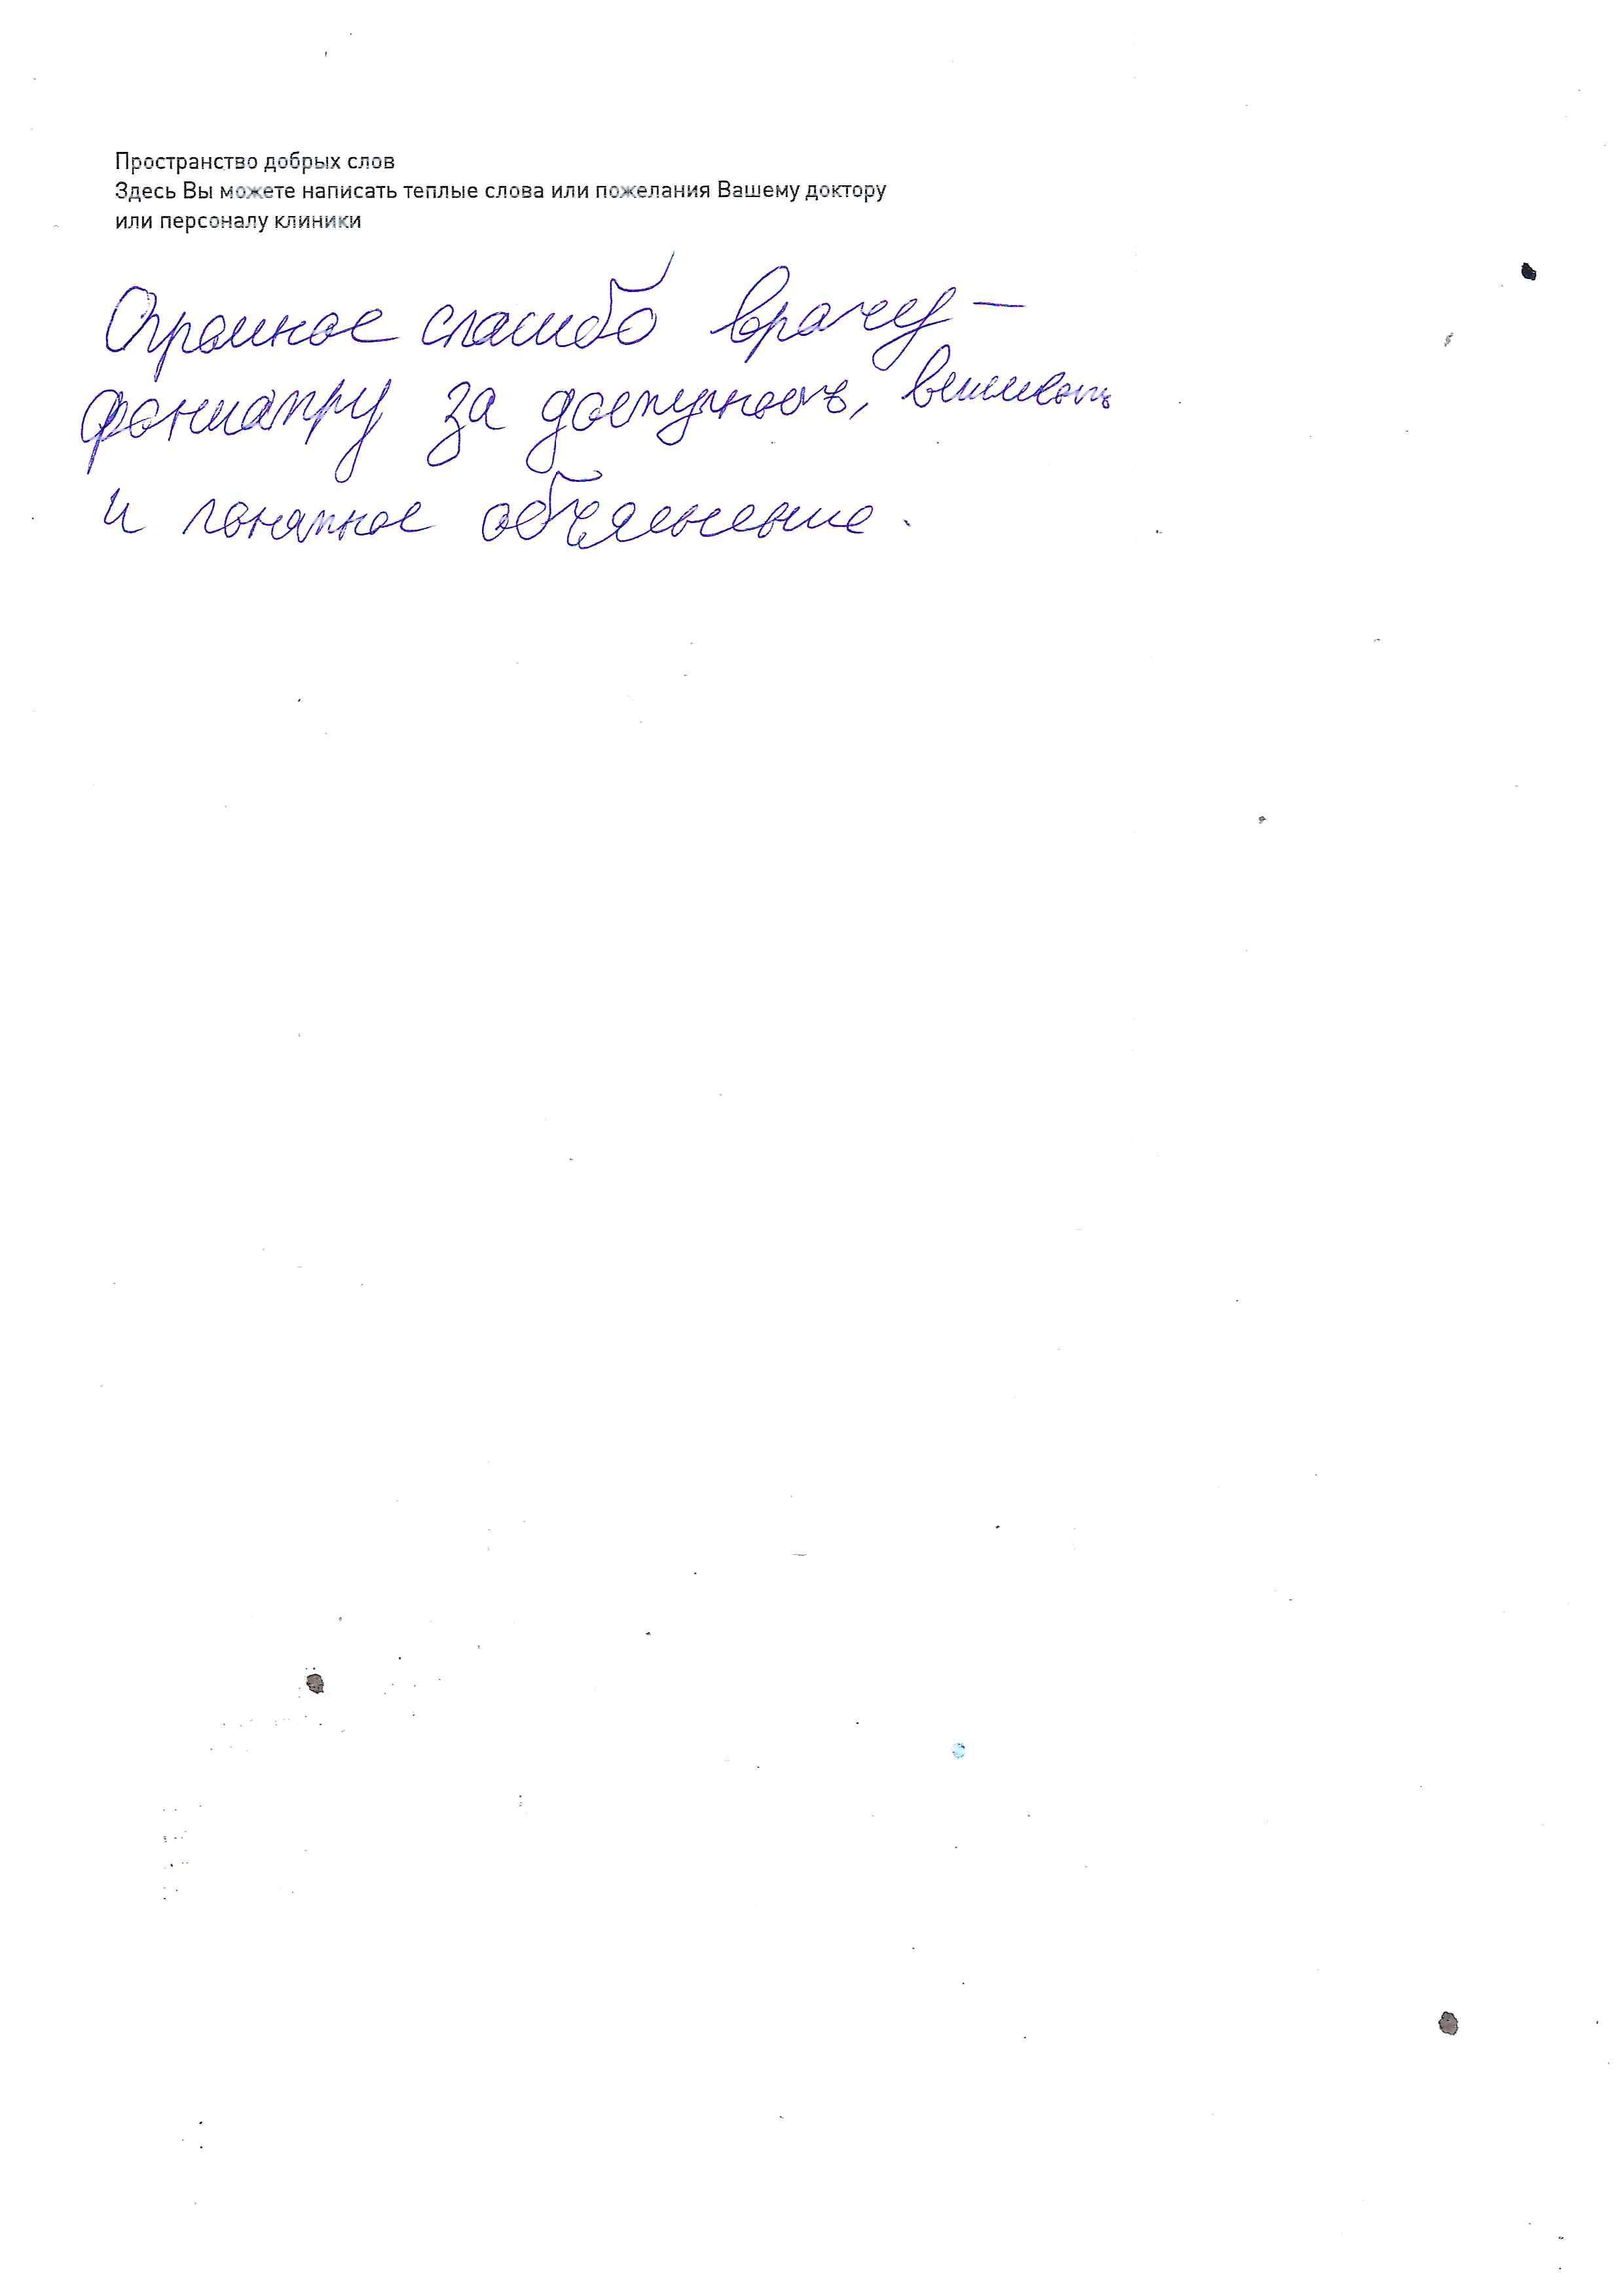 Пространство добрых слов
Здесь Вы можете написать теплые слова или пожелания Вашему доктору
или персоналу клиники
Огромное спасибо врачу –
фониатру за доступность,
и понятное объяснение.